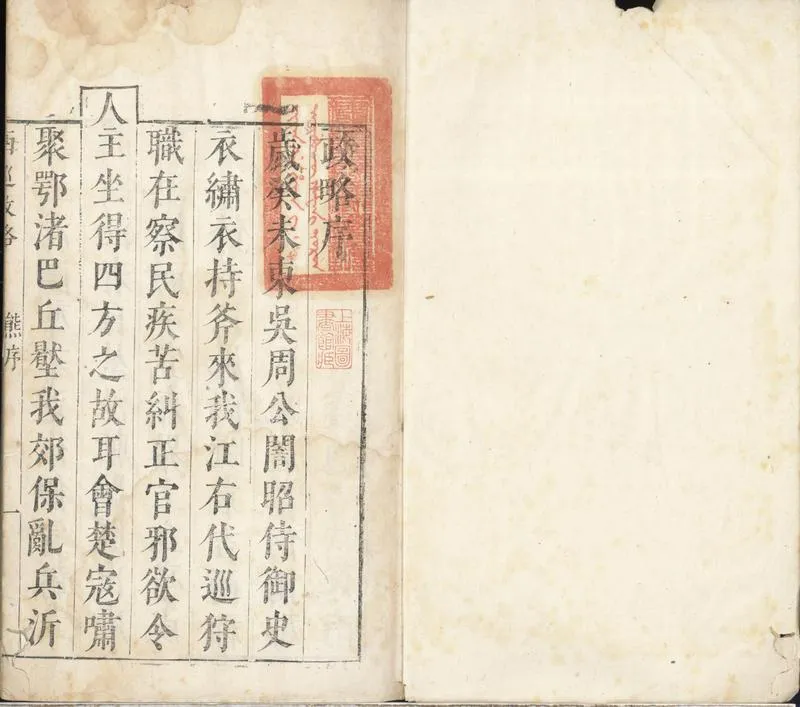 政略序
歲癸未東吳周公闇昭侍御史
衣繡衣持斧來我江右代巡狩
職在察民疾苦糾正官邪欲令
人主坐得四方之故耳會楚寇嘯
聚鄂渚巴丘壓我郊保亂兵沂
巡政略
熊序
一
上海圖書館藏